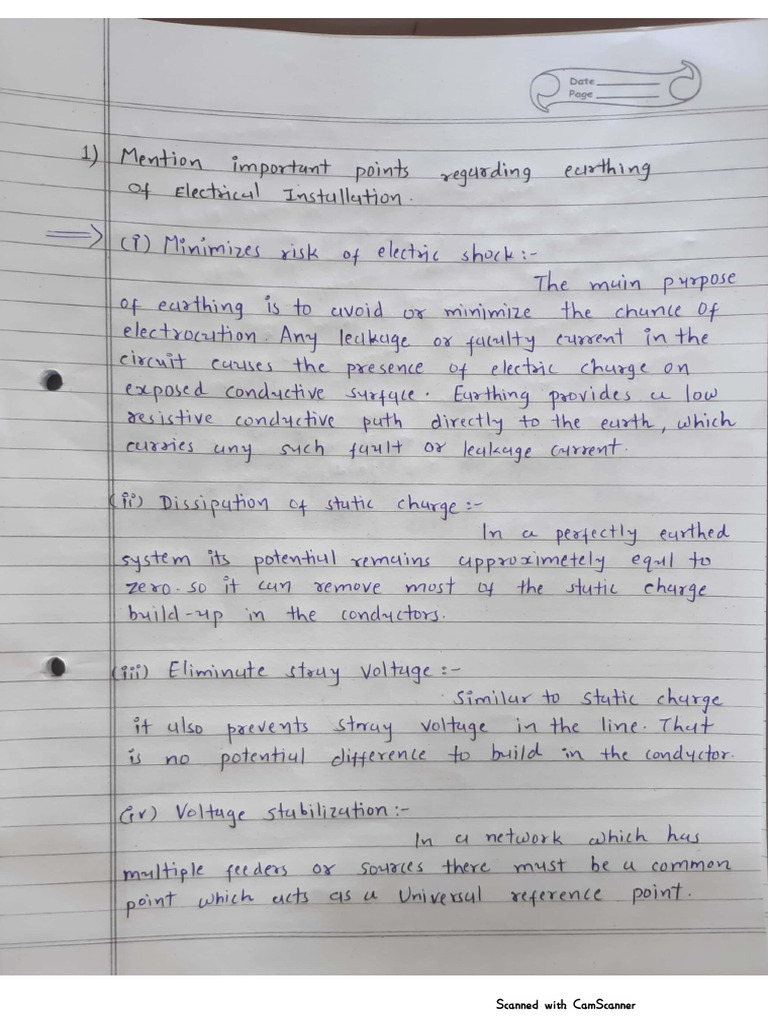 Date
Page
1) Mention important points regarding earthing
of Electrical Installation.
(i) Minimizes risk of electric shock:-
The main purpose
of earthing is to avoid or minimize the chance of
electrocution. Any leakage or faculty current in the
circuit causes the presence of electric charge on
exposed conductive surface. Earthing provides a low
resistive conductive path directly to the earth, which
carries any such fault or leakage current.
(ii) Dissipation of static charge:-
In a perfectly earthed
system its potential remains approximetely equl to
zero. so it can remove most of the static charge
build-up in the conductors.
(iii) Eliminate stray voltage:-
Similar to static charge
it also prevents stray voltage in the line. That
is no potential difference to build in the conductor.
(iv) Voltage stabilization:-
In a network which has
multiple feeders or sources there must be a common
point which acts as a Universal reference point.
Scanned with CamScanner